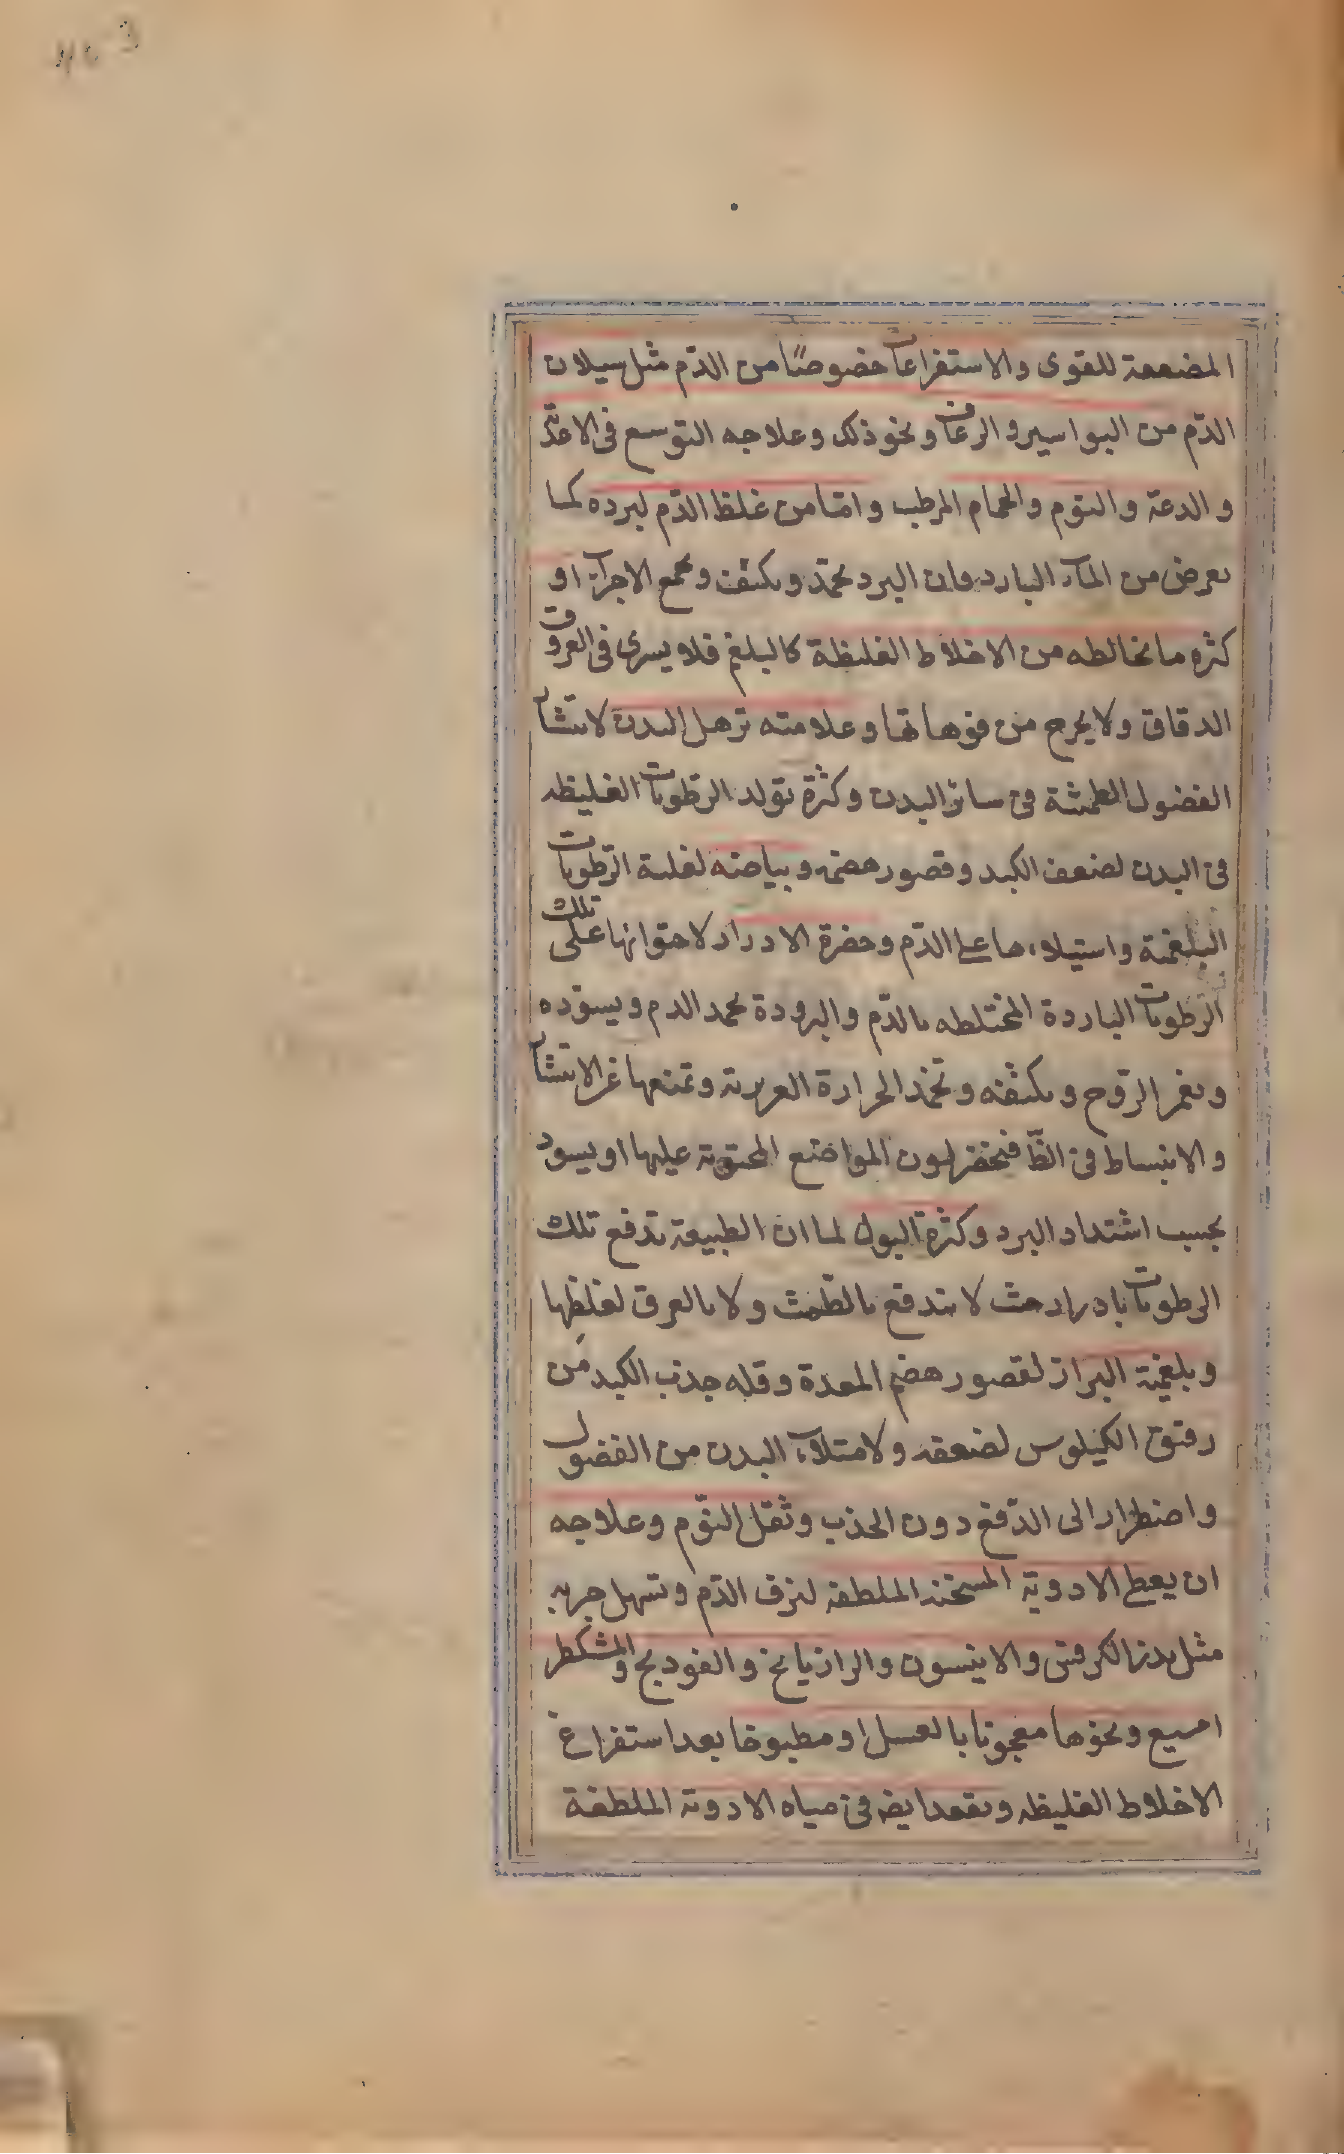 المضعفة للقوى والاستفراغات خصوصًا من الدّم مثل سيلان
الدّم من البواسير والرعاف ونحو ذلك وعلاجه التوسع فى الاغذية
والدعة والنوم والحمام المرطب وامّا من غلظ الدّم لبرده كما
يعرض من المآء البارد فان البرد يجمّد ويكثف ويجمع الاجزآء او
كثرة ما يخالطه من الاخلاط الغليظة كالبلغم فلا يسرى فى العروق
الدقاق ولا يخرج من فوهاتها وعلامته ترهل البدن لانتشار
الفضول الطمثية فى سائر البدن وكثرة تولد الرّطوبات الغليظه
فى البدن لضعف الكبد وقصور هضمه وبياضه لغلبة الرّطوبات
البلغمية واستيلاءها على الدّم وخضرة الاوراد لاحتوائها على تلك
الرّطوبات الباردة المختلطه بالدّم والبرودة تجمد الدم ويسوّده
ويغمر الرّوح ويكثفه وتخمد الحرارة الغريزية وتمنعها عن الانتشار
والانبساط فى الظّ فيخضر لون المواضع المحتوية عليها او يسود
بحسب اشتداد البرد وكثرة البول لما ان الطبيعة تدفع تلك
الرطوبات بادرار حيث لا يندفع بالطّمث ولا بالعرق لغلظها
وبلغمية البراز لقصور هضم المعدة وقله جذب الكبد من
رقيق الكيلوس لضعفه ولامتلآء البدن من الفضول
واضطرار الى الدّفع دون الجذب وثقل النّوم وعلاجه
ان يعطى الادوية المسخنه الملطفه لنزف الدّم وتسهل جريه
مثل بذر الكرفس والانيسون والرازيانج والفودنج والمشكطر
امسيع ونحوها معجونا بالعسل او مطبوخا بعد استفراغ
الاخلاط الغليظه ويقعد ايضه فى مياه الادوية الملطفة